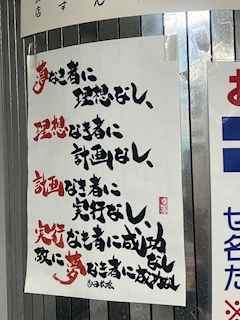 店
す
ん
夢なき者に
理想なし、
理想なき者に
計画なし、
計画なき者に
実行なし、
実行なき者に成功なし
故に夢なき者に成功なし
吉田松陰
お
せ
名
た
※